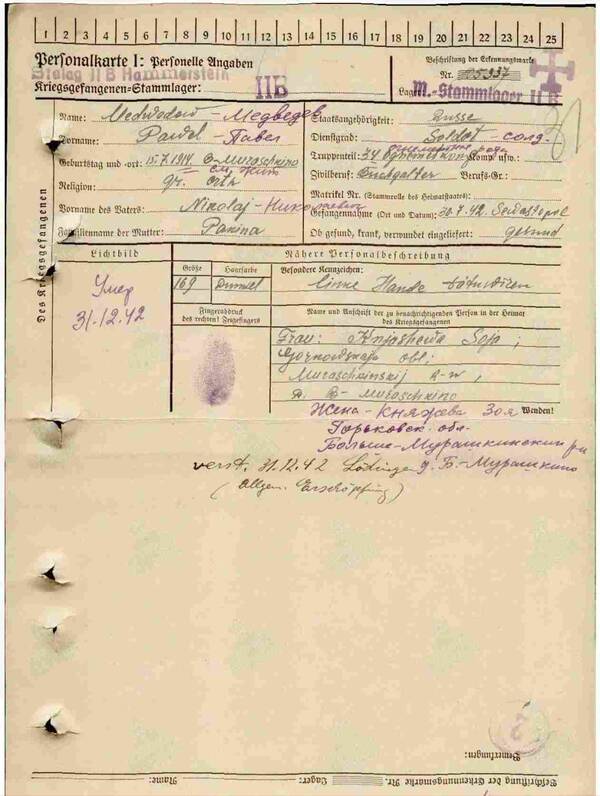 1 2 3 4 5 6 7 8 9 10 11 12 13 14 15 16 17 18 19 20 21 22 23 24 25
Personalkarte I: Personelle Angaben
Beschriftung der Erkennungsmarke
Stalag II B Hammerstein
Nr. 25937
Kriegsgefangenen-Stammlager: IIB
Lager: M.-Stammlager II B
Des Kriegsgefangenen
Name: Medwedew - Медведев
Staatsangehörigkeit: Russe
Vorname: Pawel - Павел
Dienstgrad: Soldat - солд.
Truppenteil: 34. Komp. usw.:
Geburtstag und -ort: 15.7.1914 B-Muraschkino
Zivilberuf: Buchgalter Berufs-Gr.:
Religion: gr. orth
Matrikel Nr. (Stammrolle des Heimatstaates):
Vorname des Vaters: Nikolaj - Николаевич
Gefangennahme (Ort und Datum): 30.7.42. Sewastopol
Familienname der Mutter: Panina
Ob gesund, krank, verwundet eingeliefert: gesund
Lichtbild
Nähere Personalbeschreibung
Größe Haarfarbe Besondere Kennzeichen:
169 Dunkel linke Hande
Умер
31.12.42
Fingerabdruck
des rechten! Zeigefingers
Name und Anschrift der zu benachrichtigenden Person in der Heimat
des Kriegsgefangenen
Frau: Knjashewa Soja;
Gorkowskaja obl;
Muraschkinskij R-n;
D. B-Muraschkino
Жена - Княжева Зоя
Wenden!
Горьковск. обл.
Больше-Мурашкинский р-н
д. Б.-Мурашкино
verst. 31.12.42 Lötzingen
(Allgem. Erschöpfung)
Bemerkungen:
Beschriftung der Erkennungsmarke Nr. Lager: Name: